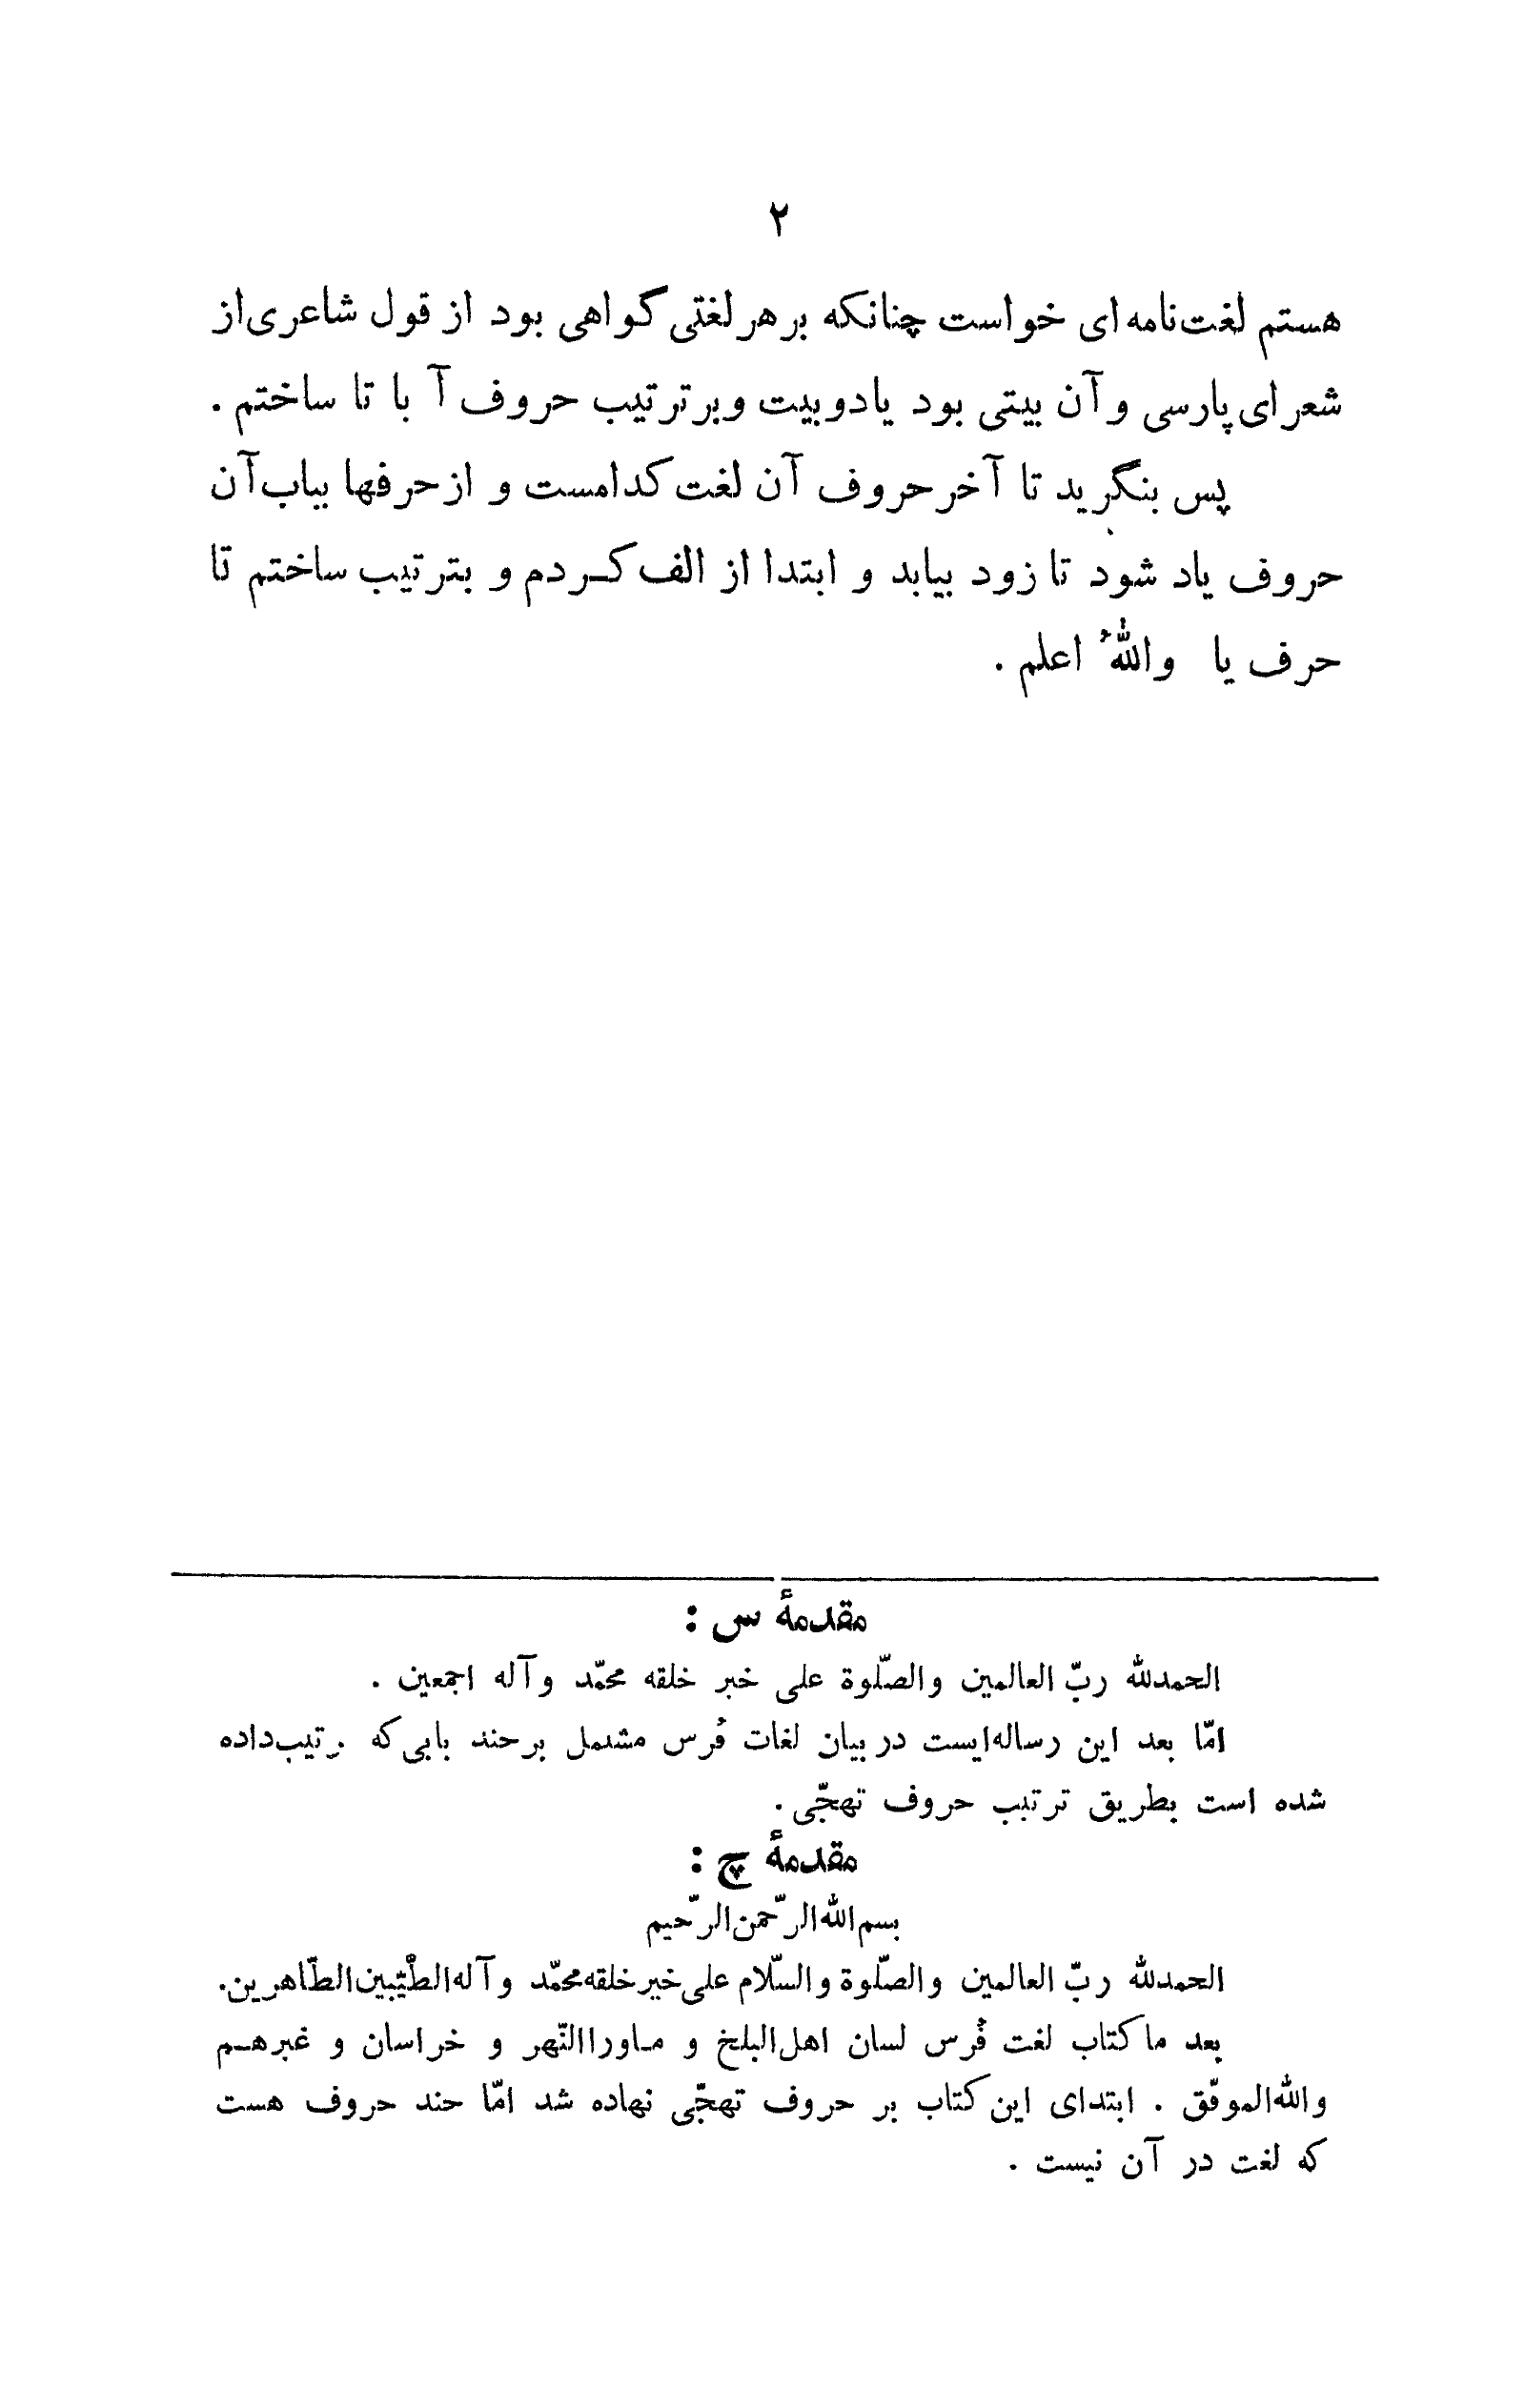 ۲
هستم لغت‌نامه‌ای خواست چنانکه بر هر لغتی گواهی بود از قول شاعری از
شعرای پارسی و آن بیتی بود یا دو بیت و بر ترتیب حروف آ با تا ساختم .
پس بنگرید تا آخر حروف آن لغت کدامست و از حرفها بباب آن
حروف یاد شود تا زود بیابد و ابتدا از الف کردم و بترتیب ساختم تا
حرف یا واللهُ اعلم .
مقدمهٔ س :
الحمدلله ربّ العالمین والصّلوة علی خیر خلقه محمّد وآله اجمعین .
امّا بعد این رساله‌ایست در بیان لغات فُرس مشتمل بر چند بابی که ترتیب‌داده
شده است بطریق ترتیب حروف تهجّی .
مقدمهٔ چ :
بسم الله الرّحمن الرّحیم
الحمدلله ربّ العالمین والصّلوة والسّلام علی خیر خلقه محمّد وآله الطّیّبین الطّاهرین.
بعد ما کتاب لغت فُرس لسان اهل البلخ و ماوراالنّهر و خراسان و غیرهم
والله الموفّق . ابتدای این کتاب بر حروف تهجّی نهاده شد امّا چند حروف هست
که لغت در آن نیست .